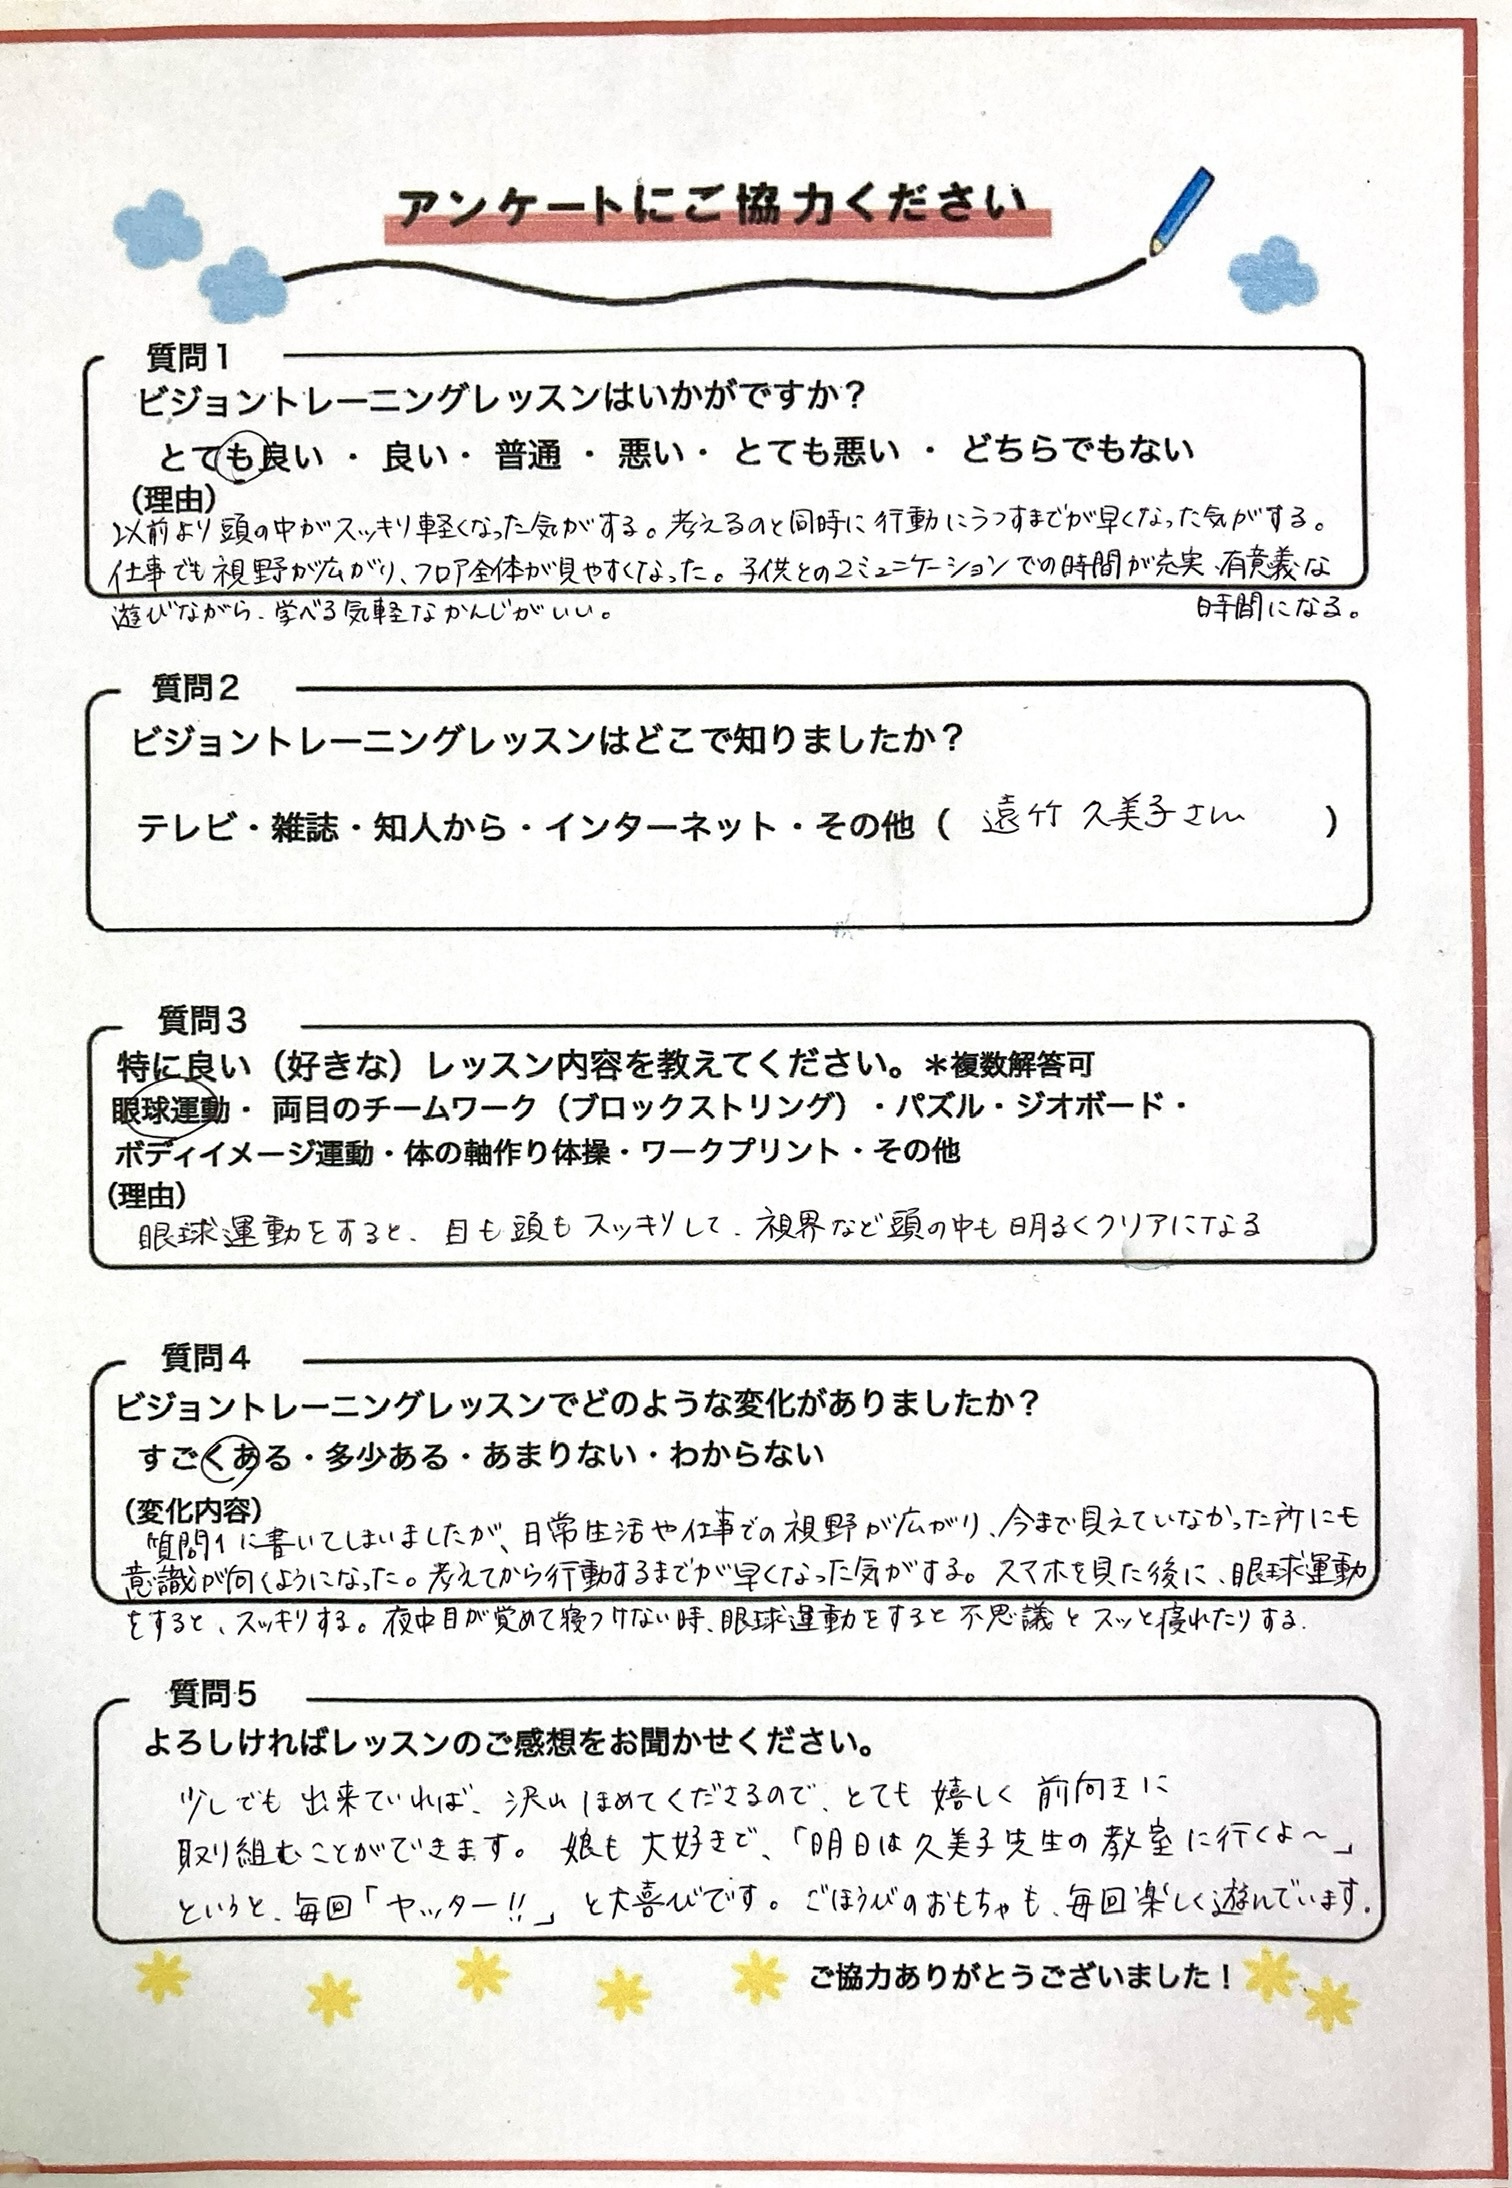 アンケートにご協力ください
質問1
ビジョントレーニングレッスンはいかがですか？
とても良い ・ 良い・ 普通 ・ 悪い・ とても悪い ・ どちらでもない
（理由）
以前より頭の中がスッキリ軽くなった気がする。考えるのと同時に行動にうつすまでが早くなった気がする。
仕事でも視野が広がり、フロア全体が見やすくなった。子供とのコミュニケーションでの時間が充実、有意義な
時間になる。
遊びながら、学べる気軽なかんじがいい。
質問2
ビジョントレーニングレッスンはどこで知りましたか？
テレビ・雑誌・知人から・インターネット・その他（ 遠竹 久美子さん ）
質問3
特に良い（好きな）レッスン内容を教えてください。＊複数解答可
眼球運動・ 両目のチームワーク（ブロックストリング）・パズル・ジオボード・
ボディイメージ運動・体の軸作り体操・ワークプリント・その他
（理由）
眼球運動をすると、目も頭もスッキリして、視界など頭の中も明るくクリアになる
質問4
ビジョントレーニングレッスンでどのような変化がありましたか？
すごくある・多少ある・あまりない・わからない
（変化内容）
質問1に書いてしまいましたが、日常生活や仕事での視野が広がり、今まで見えていなかった所にも
意識が向くようになった。考えてから行動するまでが早くなった気がする。スマホを見た後に、眼球運動
をすると、スッキリする。夜中目が覚めて寝つけない時、眼球運動をすると不思議とスッと寝れたりする。
質問5
よろしければレッスンのご感想をお聞かせください。
少しでも出来ていれば、沢山ほめてくださるので、とても嬉しく前向きに
取り組むことができます。娘も大好きで、「明日は久美子先生の教室に行くよ～」
というと、毎回「ヤッター!!」と大喜びです。ごほうびのおもちゃも、毎回楽しく遊んでいます。
ご協力ありがとうございました！